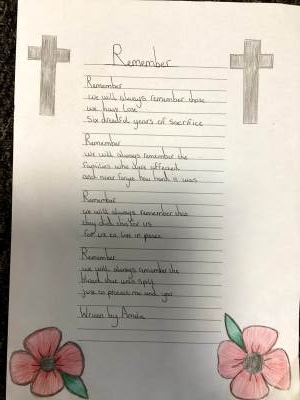 Remember
Remember
we will always remember those
we have lose
Six dreadful years of sacrifice
Remember
we will always remember the
families who are affected
and never forget how hard it was
Remember
we will always remember that
they did this for us
for us to live in peace
Remember
we will always remember the
blood that was spilt
just to protect me and you
Written by